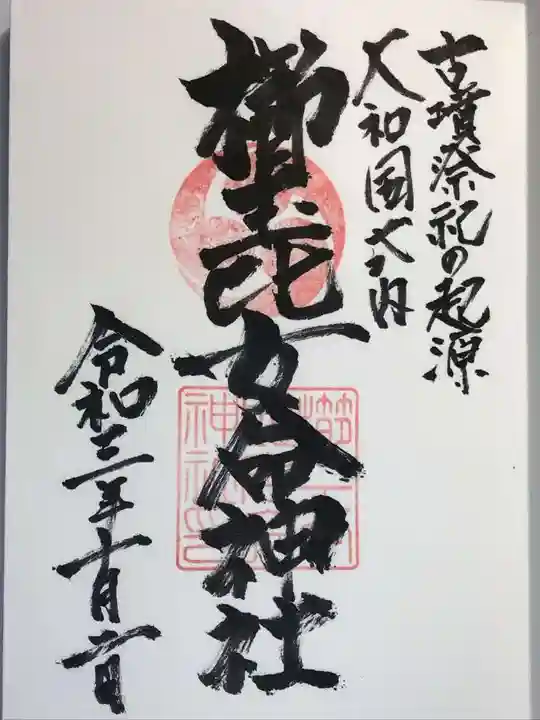 古墳祭祀の起源
大和国式内
櫛玉比女命神社
令和三年十月六日